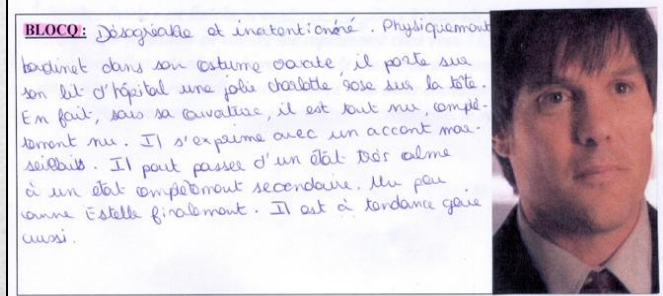 BLOCQ : Désagréable et inatentionné. Physiquement
badinet dans son costume cravate, il porte sur
son lit d'hôpital une jolie charlotte rose sur la tête.
En fait, sous sa couverture, il est tout nu, complè-
tement nu. Il s'exprime avec un accent mar-
seillais. Il peut passer d'un état très calme
à un état complètement secondaire. Un peu
comme Estelle finalement. Il est à tendance gaie
aussi.